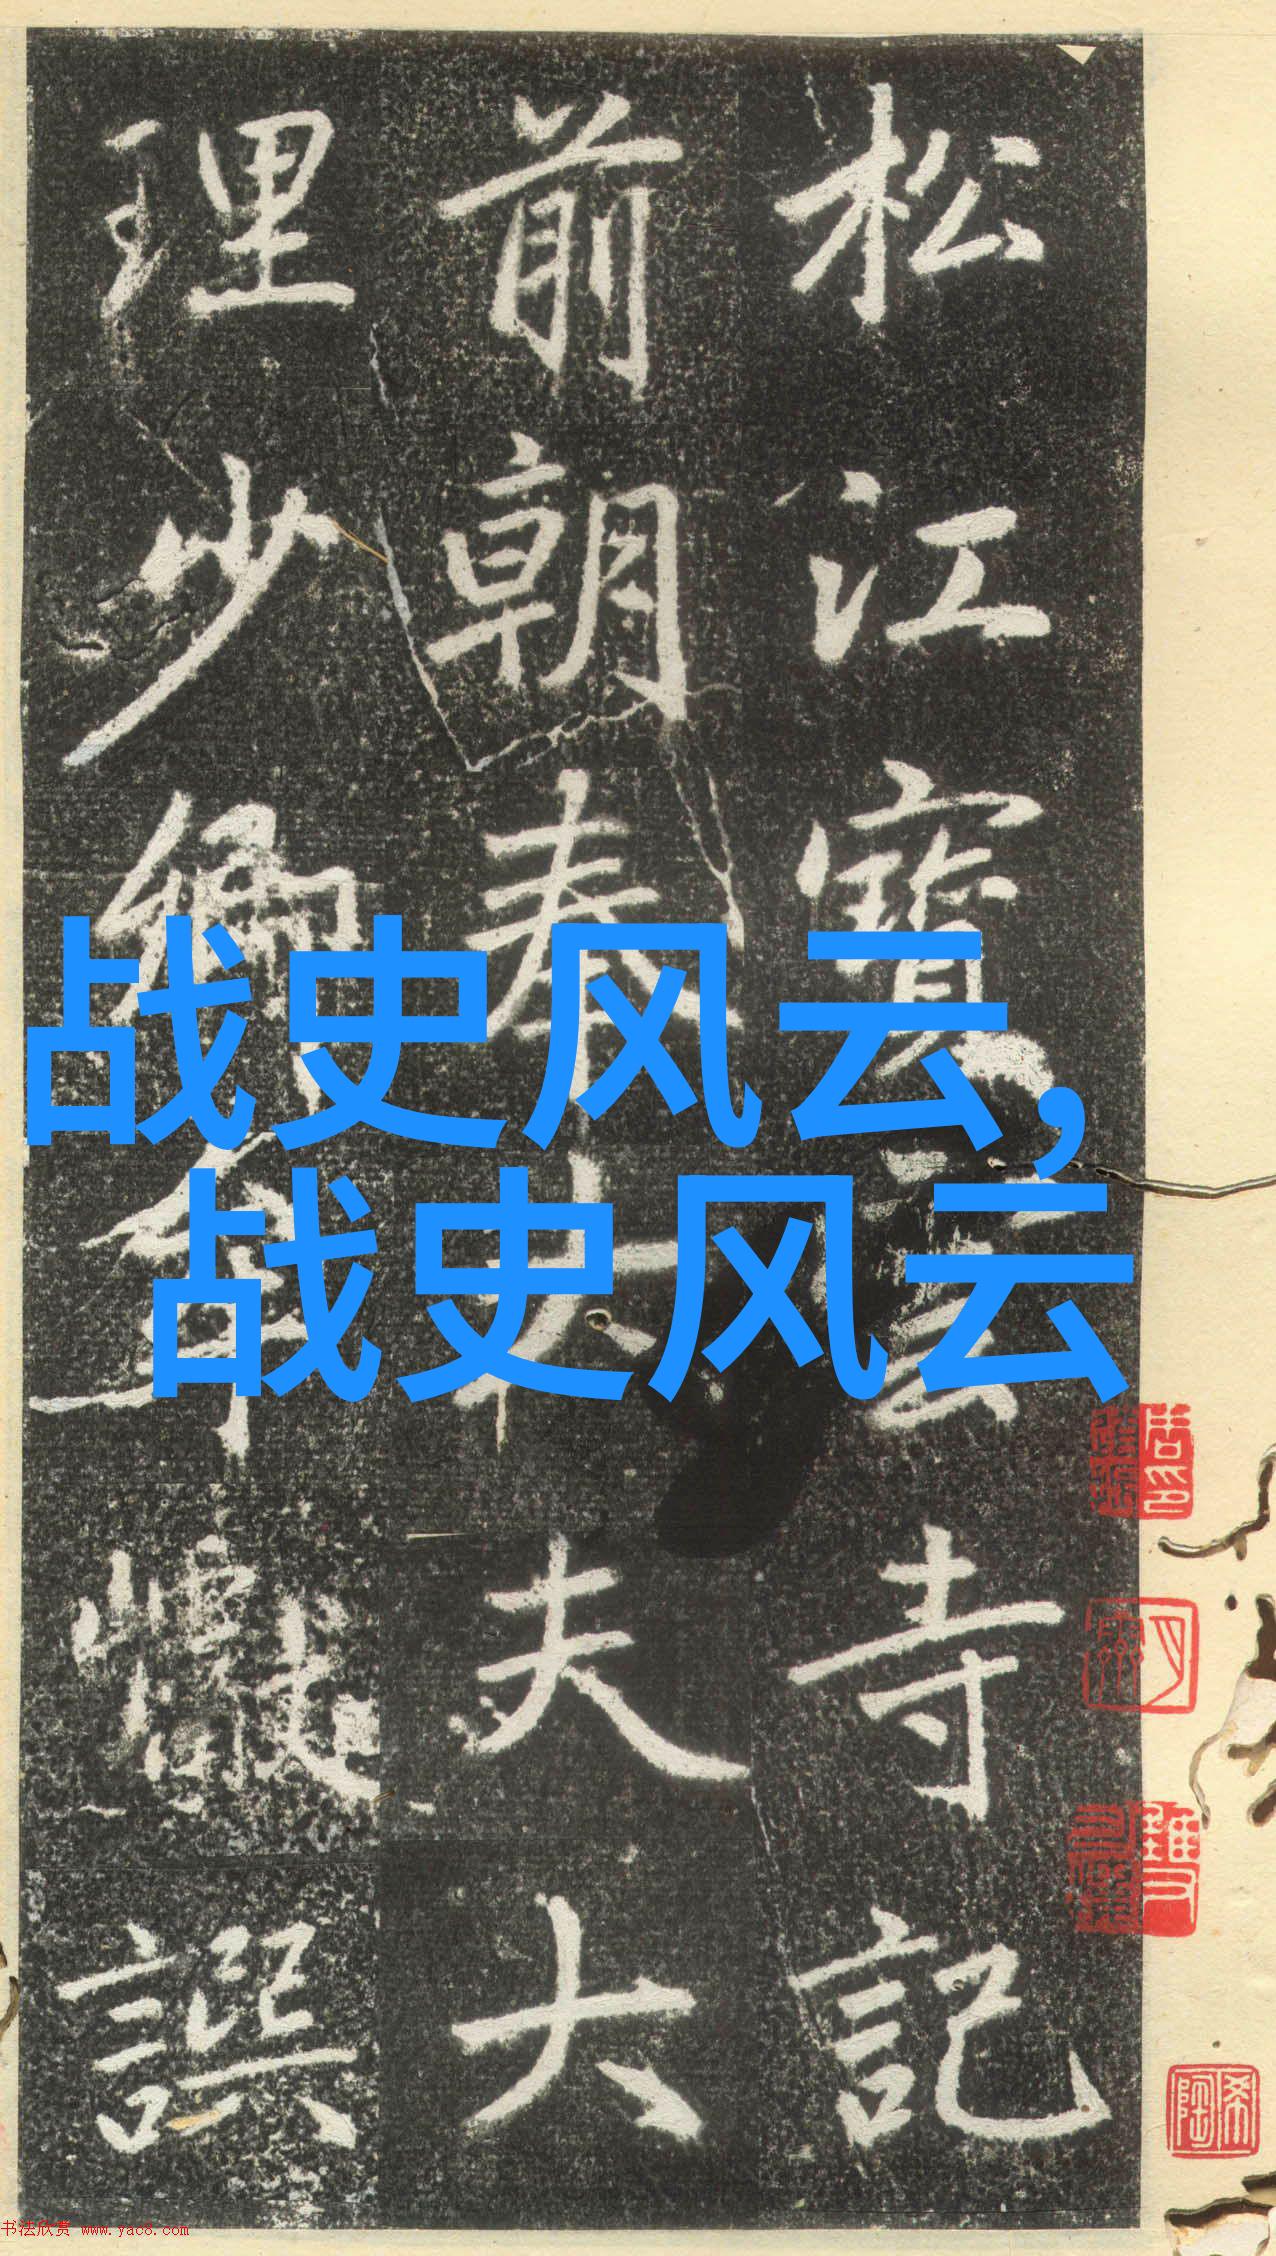 松江寶雲寺記
前朝奉大夫大
理少卿牟巘譔
战史风云,
战史风云
书法欣赏 www.yac8.com